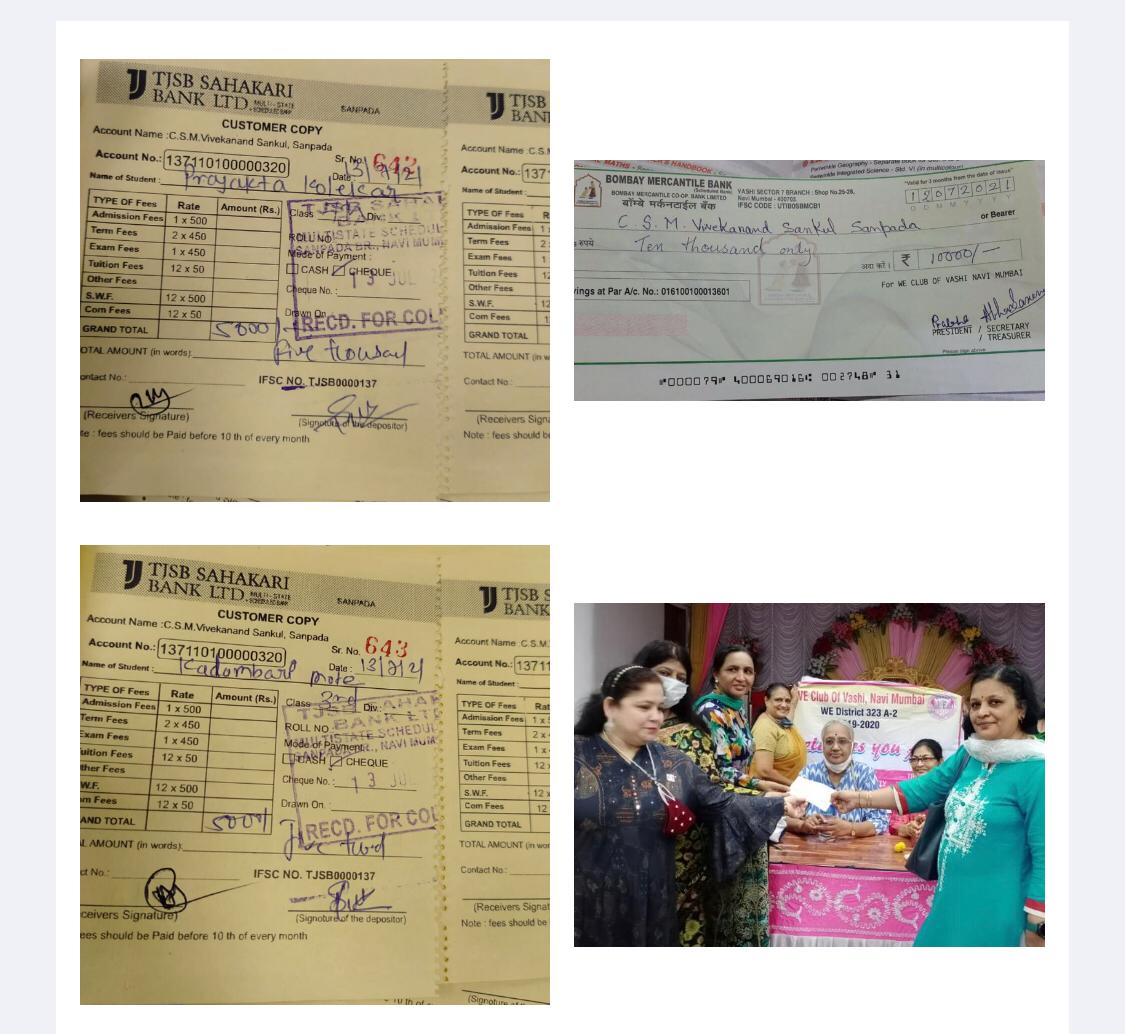 TJSB SAHAKARI
BANK LTD. MULTI-STATE SCHEDULED BANK
SANPADA
CUSTOMER COPY
Account Name :C.S.M.Vivekanand Sankul, Sanpada
Account No.: 137110100000320
Sr. No. 642
Name of Student : Prajakta Kolekar
Date 13/7/21
TYPE OF Fees Rate Amount (Rs.)
Class Div.:
Admission Fees 1 x 500
Term Fees 2 x 450
ROLL NO
Exam Fees 1 x 450
Mode of Payment :
Tuition Fees 12 x 50
CASH CHEQUE
13 JUL
Other Fees
Cheque No. :
S.W.F. 12 x 500
Com Fees 12 x 50
Drawn On
GRAND TOTAL 5000/-
RECD. FOR COL
OTAL AMOUNT (in words): five thousand
ontact No.:
IFSC NO. TJSB0000137
(Receivers Signature)
(Signature of the depositor)
te : fees should be Paid before 10 th of every month
TJSB
BAN
Account Name :C.S.
Account No.: 137
Name of Student :
TYPE OF Fees R
Admission Fees 1
Term Fees 2
Exam Fees 1
Tuition Fees 12
Other Fees
S.W.F. 12
Com Fees 12
GRAND TOTAL
TOTAL AMOUNT (in w
Contact No.:
(Receivers Signa
Note : fees should b
BOMBAY MERCANTILE BANK
(Scheduled Bank)
BOMBAY MERCANTILE CO-OP. BANK LIMITED
बॉम्बे मर्कनटाईल बैंक
VASHI SECTOR 7 BRANCH : Shop No.25-26,
Navi Mumbai - 400703.
IFSC CODE : UTIB0SBMCB1
"Valid for 3 months from the date of issue"
12072021
D D M M Y Y Y Y
C. S. M. Vivekanand Sankul Sanpada
or Bearer
रुपये Ten thousand only
अदा करें। ₹ 10000/-
vings at Par A/c. No.: 016100100013601
For WE CLUB OF VASHI NAVI MUMBAI
PRESIDENT / SECRETARY
/ TREASURER
Please sign above
⑈000079⑈ 400069016⑆ 002748⑈ 31
TJSB SAHAKARI
BANK LTD. MULTI-STATE SCHEDULED BANK
SANPADA
CUSTOMER COPY
Account Name :C.S.M.Vivekanand Sankul, Sanpada
Account No.: 137110100000320
Sr. No. 643
Name of Student : Kadambari mote
Date : 13/7/21
TYPE OF Fees Rate Amount (Rs.)
Class 3rd Div.
Admission Fees 1 x 500
Term Fees 2 x 450
ROLL NO
Exam Fees 1 x 450
Mode of Payment:
uition Fees 12 x 50
CASH CHEQUE
13 JUL
ther Fees
Cheque No. :
W.F. 12 x 500
m Fees 12 x 50
Drawn On :
AND TOTAL 5000/-
RECD. FOR COL
L AMOUNT (in words):
ct No.:
IFSC NO. TJSB0000137
ceivers Signature)
(Signature of the depositor)
ees should be Paid before 10 th of every month
TJSB S
BANK
Account Name :C.S.M.
Account No.: 13711
Name of Student :
TYPE OF Fees Ra
Admission Fees 1 x
Term Fees 2 x
Exam Fees 1 x
Tuition Fees 12 x
Other Fees
S.W.F. 12 x
Com Fees 12
GRAND TOTAL
TOTAL AMOUNT (in wor
Contact No.:
(Receivers Signat
Note : fees should be
(Signature of
WE Club Of Vashi, Navi Mumbai
WE District 323 A-2
19-2020
es you